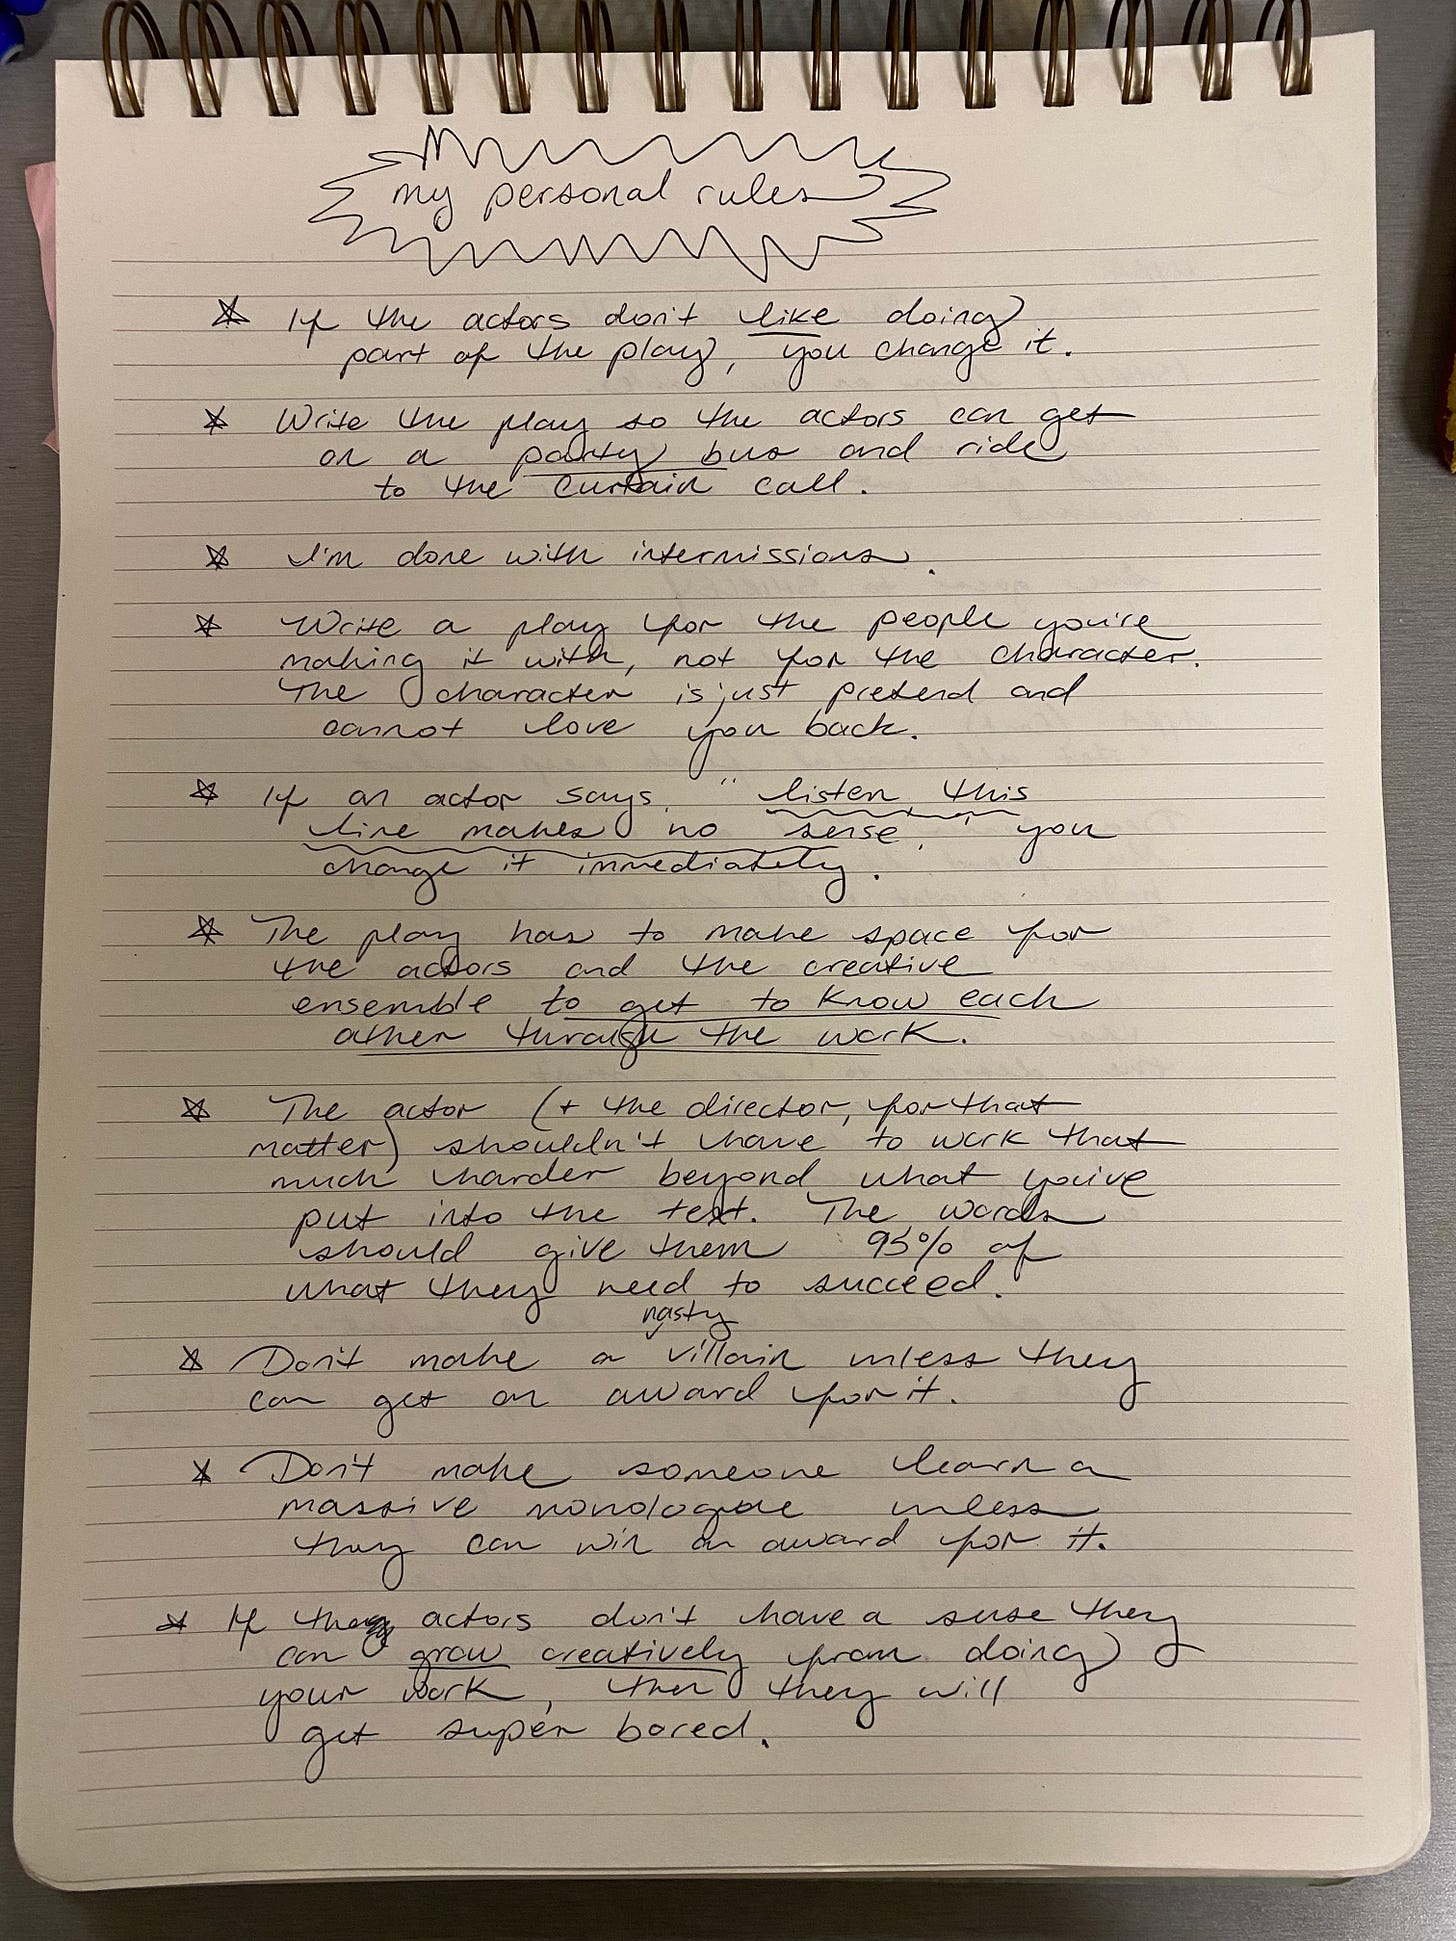 my personal rules
* If the actors don't like doing
part of the play, you change it.
* Write the play so the actors can get
on a party bus and ride
to the curtain call.
* I'm done with intermissions.
* Write a play for the people you're
making it with, not for the character.
The character is just pretend and
cannot love you back.
* If an actor says, "listen, this
line makes no sense," you
change it immediately.
* The play has to make space for
the actors and the creative
ensemble to get to know each
other through the work.
* The actor (+ the director, for that
matter) shouldn't have to work that
much harder beyond what you've
put into the text. The words
should give them 95% of
what they need to succeed.
nasty
* Don't make a villain unless they
can get an award for it.
* Don't make someone learn a
massive monologue unless
they can win an award for it.
* If the actors don't have a sense they
can grow creatively from doing
your work, then they will
get super bored.